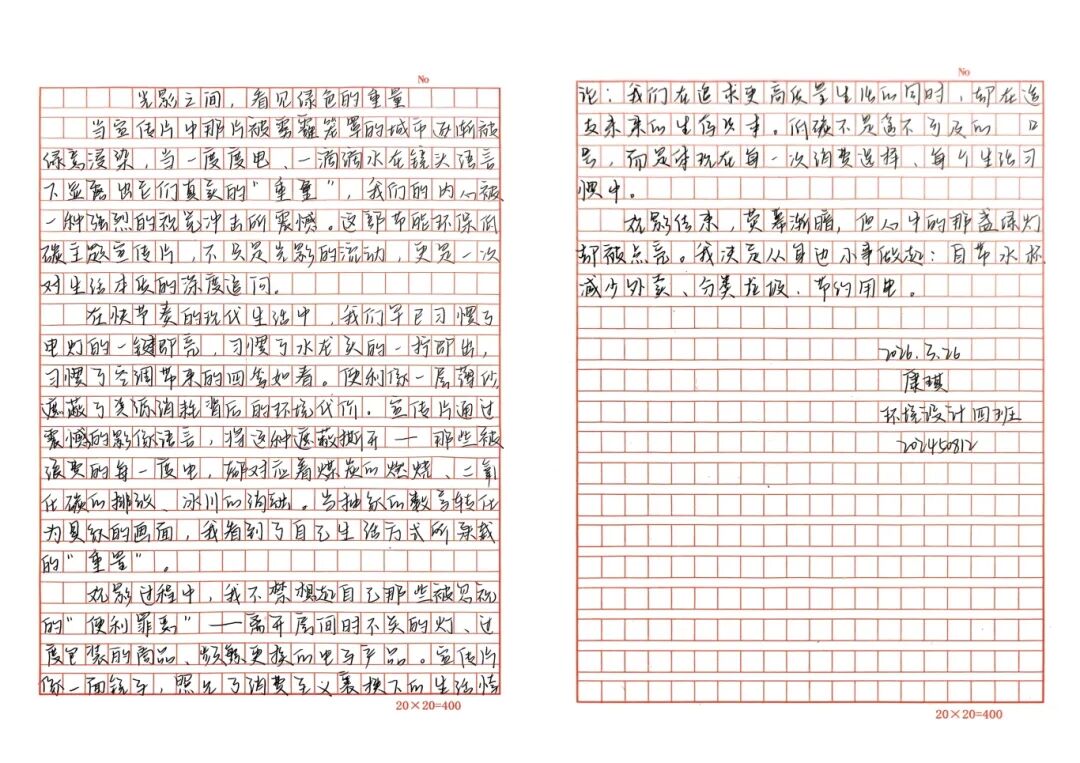 No
光影之间，看见绿色的重量
当宣传片中那片被雾霾笼罩的城市逐渐被
绿意浸染，当一度度电、一滴滴水在镜头语言
下显露出它们真实的“重量”，我们的内心被
一种强烈的视觉冲击所震憾。这部节能环保低
碳主题宣传片，不只是光影的流动，更是一次
对生活本质的深度追问。
在快节奏的现代生活中，我们早已习惯了
电灯的一键即亮，习惯了水龙头的一拧即出，
习惯了空调带来的四季如春。便利像一层薄纱
遮蔽了资源消耗背后的环境代价。宣传片通过
震憾的影像语言，将这种遮蔽撕开——那些被
浪费的每一度电，都对应着煤炭的燃烧、二氧
化碳的排放、冰川的消融。当抽象的数字转化
为具象的画面，我看到了自己生活方式所承载
的“重量”。
观影过程中，我不禁想起自己那些被忽视
的“便利罪恶”——离开房间时不关的灯、过
度包装的商品、频繁更换的电子产品。宣传片
像一面镜子，照出了消费主义裹挟下的生活悖
20×20=400
No
论：我们在追求更高质量生活的同时，却在透
支未来的生存资本。低碳不是遥不可及的 口
号，而是体现在每一次消费选择、每个生活习
惯中。
观影结束，荧幕渐暗，但心中的那盏绿灯
却被点亮。我决定从身边小事做起：自带水杯
减少外卖、分类垃圾、节约用电。
2026.3.26
康琪
环境设计四班
202450812
20×20=400